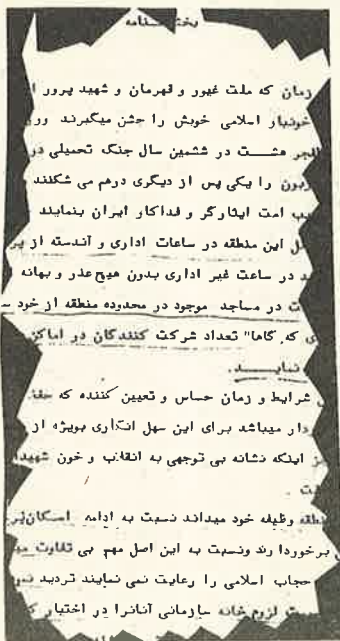 بخشنامه
زمان که ملت غیور و قهرمان و شهید پرور ا
خونبار اسلامی خویش را جشن میگیرند ور
الفجر هشت در ششمین سال جنگ تحمیلی در
زبون را یکی پس از دیگری درهم می شکلند
یب امت ایثارگر و فداکار ایران بنمایند
ل این منطقه در ساعات اداری و آندسته از پر
د در ساعت غیر اداری بدون هیچ عذر و بهانه
ت در مساجد موجود در محدوده منطقه از خود س
ی که گاها" تعداد شرکت کنندگان در اماکن
نمایـــد.
شرایط و زمان حساس و تعیین کننده که حفظ
دار میباشد برای این سهل انگاری بویژه از
ز اینکه نشانه بی توجهی به انقلاب و خون شهید
ت .
منطقه وظیفه خود میداند نسبت به ادامه اسکان
برخوردارند ونسبت به این اصل مهم بی تفاوت
حجاب اسلامی را رعایت نمی نمایند تردید نمو
لزوم خانه سازمانی آنانرا در اختیار